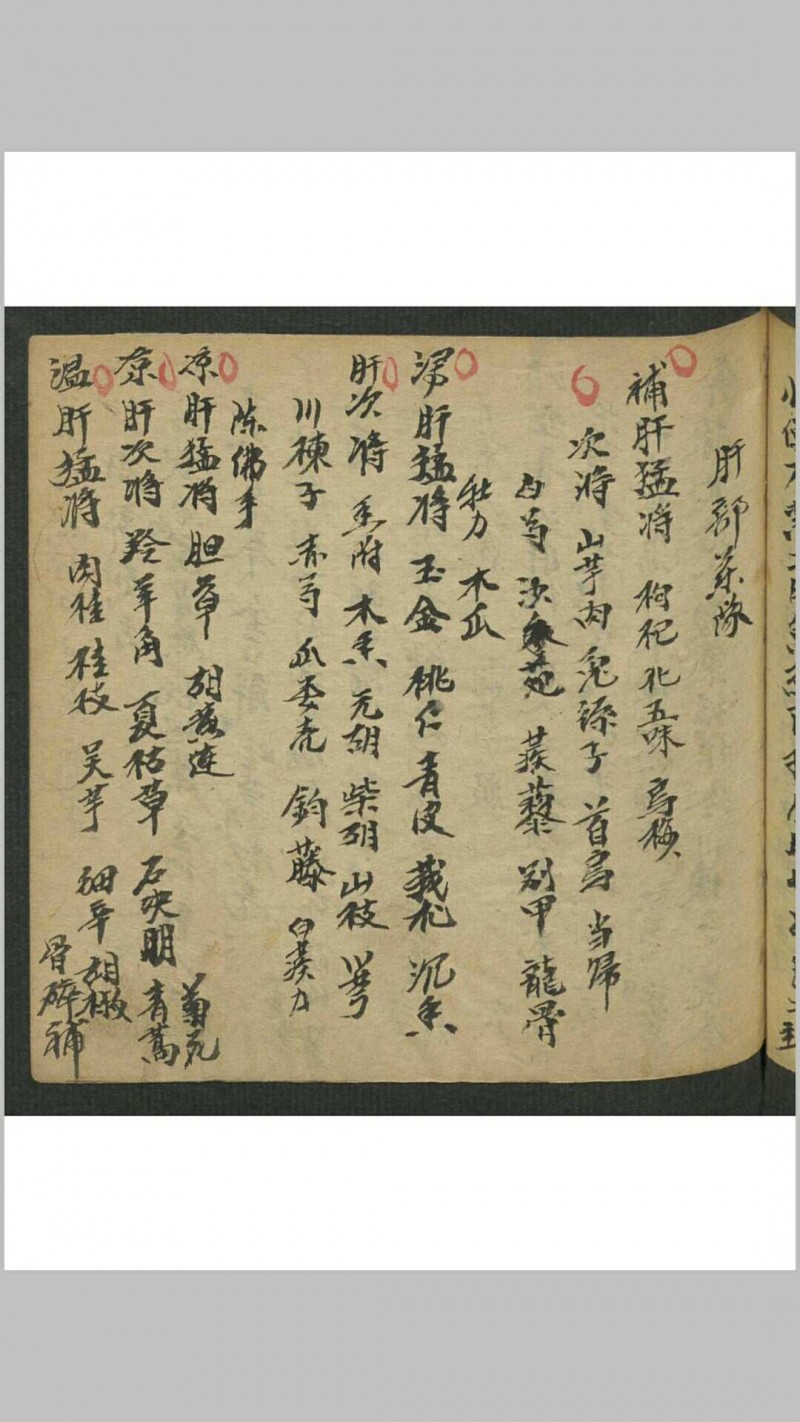 肝部药隊
補肝猛将 枸杞 北五味 烏梅
次将 山芋肉 兎絲子 首烏 当歸
白芍 沙苑 蒺藜 别甲 龍骨
牡力 木瓜
泻肝猛将 玉金 桃仁 青皮 莪朮 沉香
肝次将 香附 木香 元胡 柴胡 山枝
川楝子 赤芍 瓜委壳 鈎藤 白蒺力
陈佛手
凉肝猛将 胆草 胡黄連 菊花
凉肝次将 羚羊角 夏枯草 石决明 青蒿
温肝猛将 肉桂 桂枝 吴芋 细辛 胡椒
骨碎補